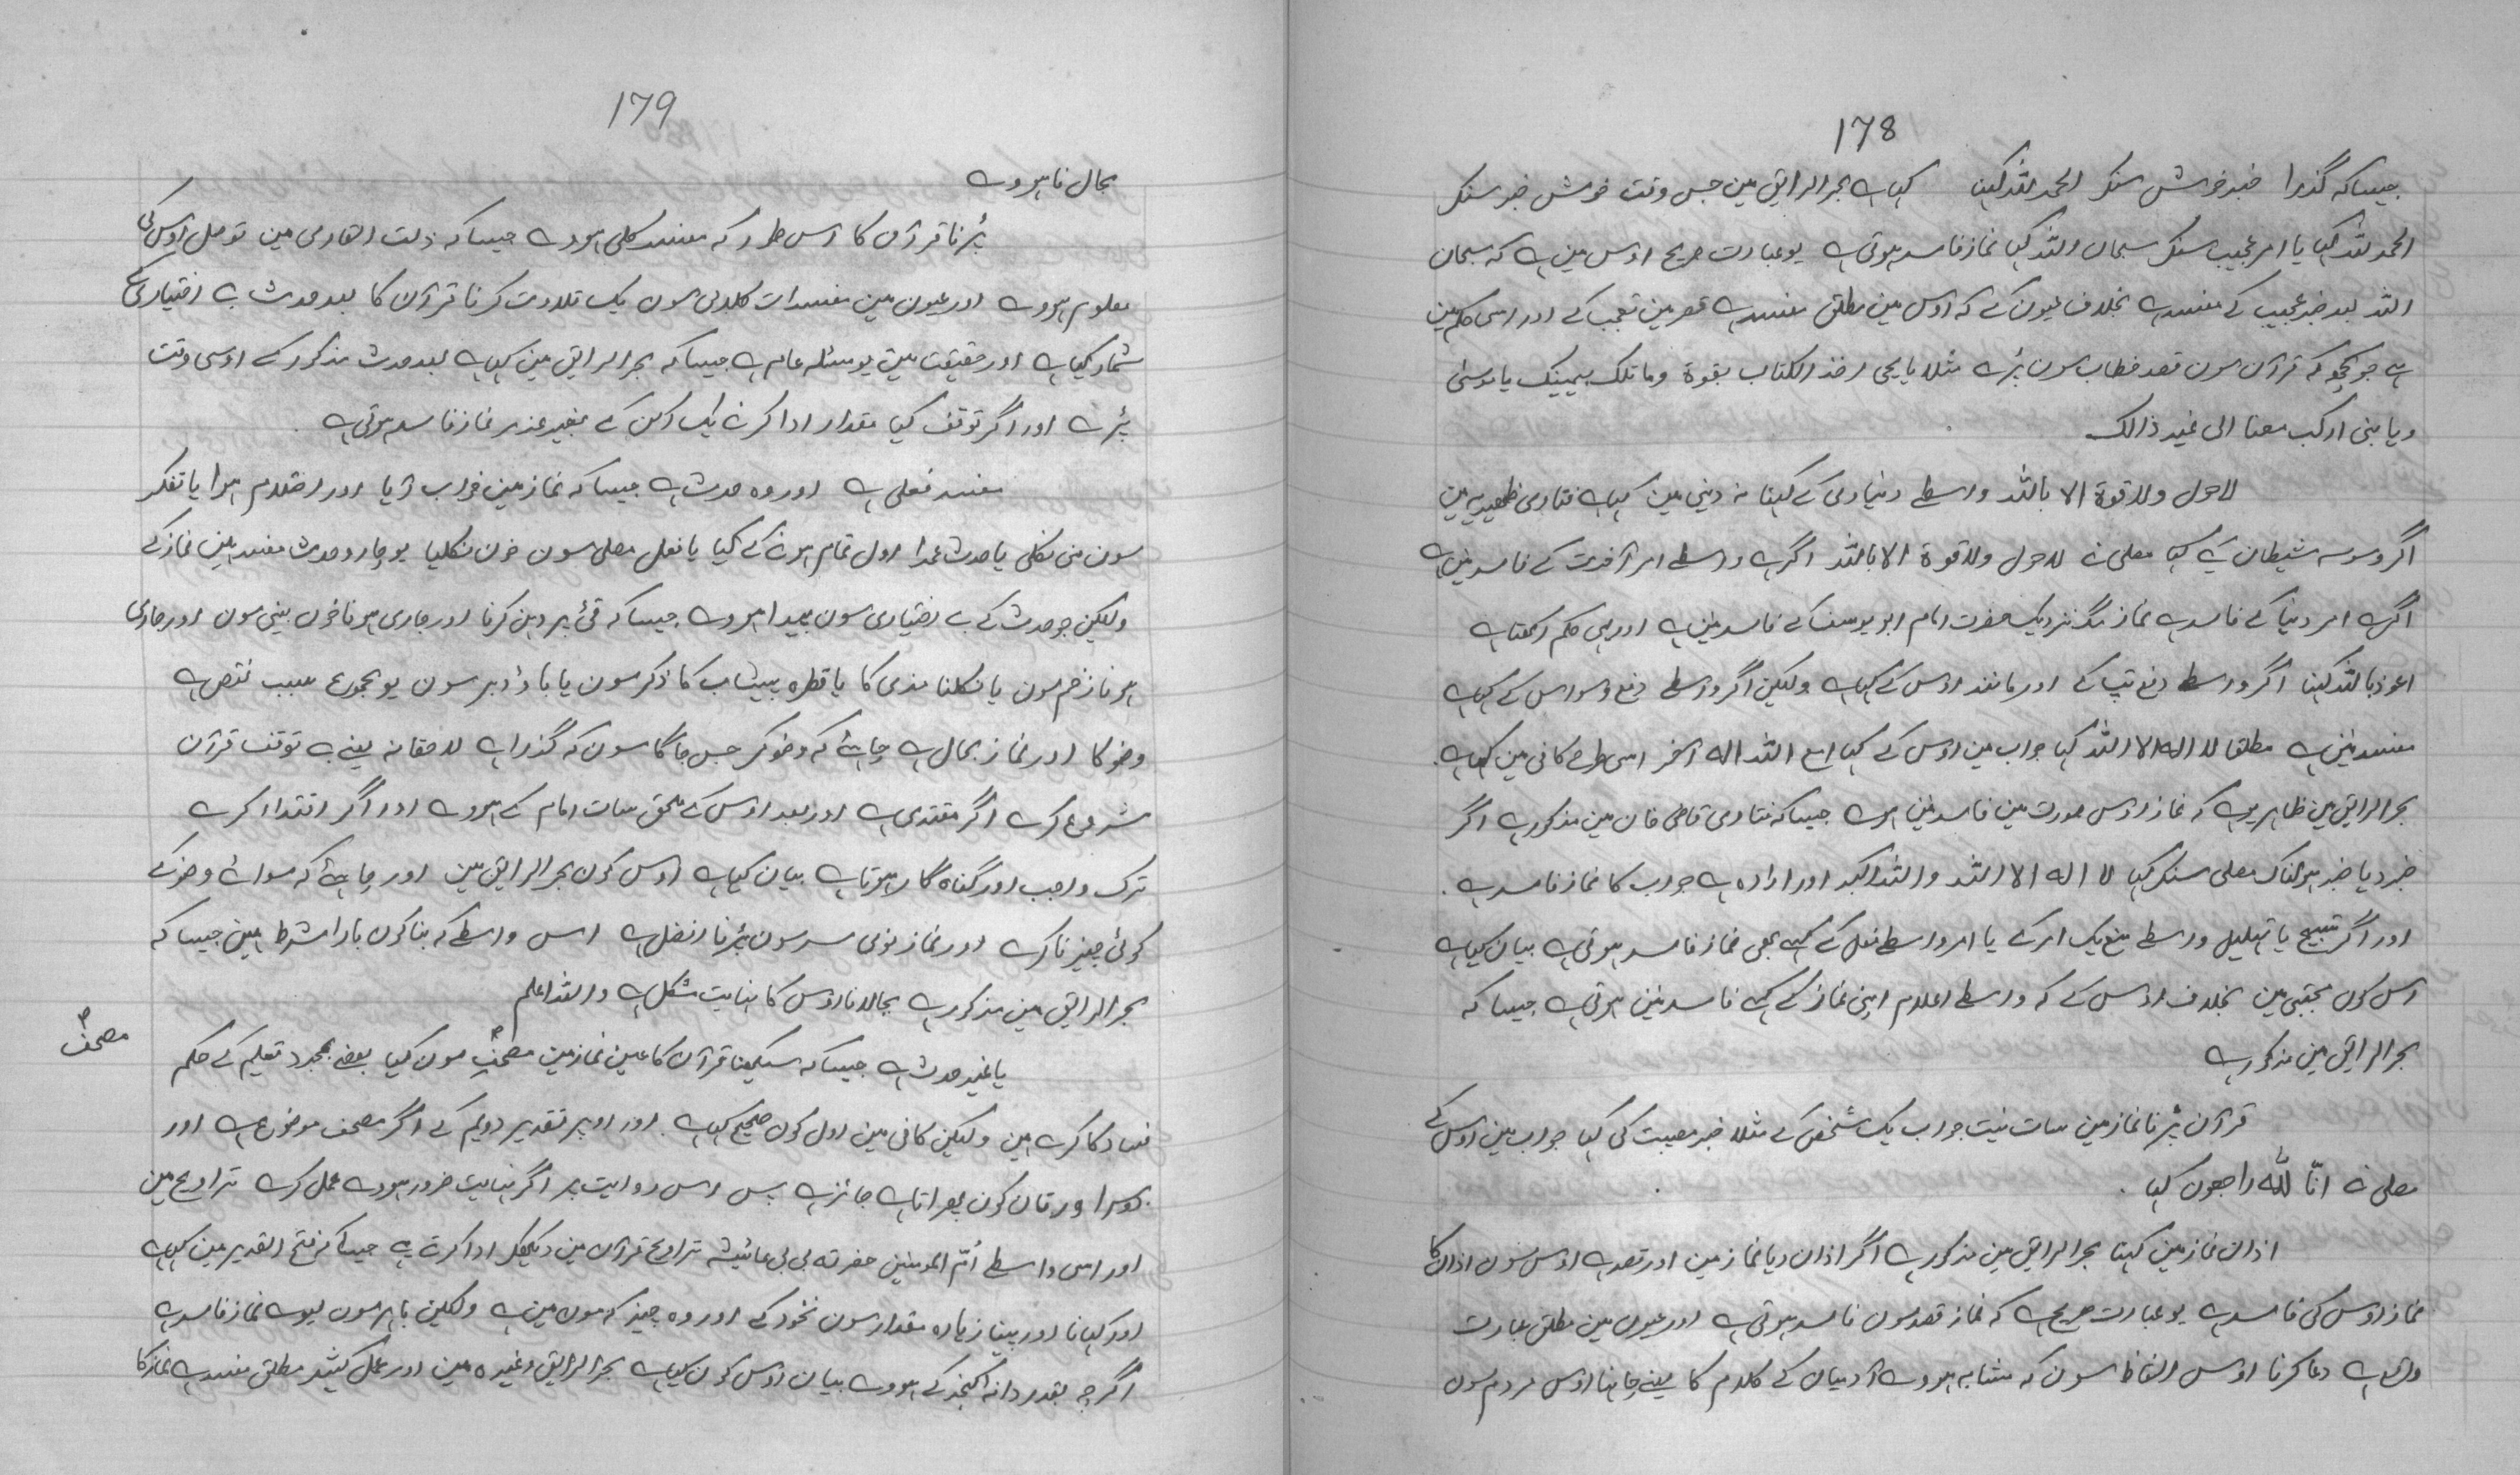 178
جیساکہ گذرا خبر خوش سنکر الحمد للہ کہنا کہا ہے بحر الرایق مین جس وقت خوش خبر سنکر
الحمد للہ کہا یا امر عجیب سنکر سبحان اللہ کہا نماز فاسد ہوتی ہے یو عبارت صریح اوس مین ہے کہ سبحان
اللہ بعد خبر عجیب کے مفسد ہے بخلاف عیون کے کہ اوس مین مطلق مفسد ہے قصر مین تعجب کے اور اسی حکم مین
ہے جو کچھ کہ قرآن سون قصد خطاب سون پڑے مثلا یا یحی اخذ الکتاب بقوة وما تلک بیمینک یا موسٰی
ویا بنی ارکب معنا الی غیر ذالک
لاحول ولا قوة الا باللہ واسطے دنیاوی کے کہنا نہ دینی مین کہا ہے فتاوی ظہیریہ مین
اگر وسوسہ شیطان سے کہا مصلی نے لاحول ولا قوة الا باللہ اگر ہے واسطے امر آخرت کے فاسد نین ہے
اگر ہے امر دنیا کے فاسد ہے نماز مگر نزدیک حضرت امام ابو یوسف کے فاسد نین ہے اور یہی حکم رکھتا ہے
اعوذ باللہ کہنا اگر واسطے دفع تپ کے اور مانند اوس کے کہا ہے ولیکن اگر واسطے دفع وسواس کے کہا ہے
مفسد نین ہے مطلقا لا الہ الا اللہ کہا جواب مین اوس کے کہا امع اللہ الہ آخر اسی طرح کافی مین کہا ہے.
بحر الرایق مین ظاہر یو ہے کہ نماز اوس صورت مین فاسد نین ہوے جیساکہ فتاوی قاضی خان مین مذکور ہے اگر
خبر دیا خبر ہولناک مصلی سنکر کہا لا الہ الا اللہ واللہ اکبر اور ارادہ ہے جواب کا نماز فاسد ہے.
اور اگر تسبیح یا تہلیل واسطے منع یک امر کے یا امر واسطے فعل کے کہے بھی نماز فاسد ہوتی ہے بیان کیا ہے
اس کون مجتبی مین بخلاف اوس کے کہ واسطے اعلام اپنی نماز کے کہے فاسد نین ہوتی ہے جیساکہ
بحر الرایق مین مذکور ہے
قرآن پڑنا نماز مین سات نیت جواب یک شخص کے مثلا خبر مصیبت کی کہا جواب مین اوس کے
مصلی نے انّا للّٰہ راجعون کہا.
اذان نماز مین کہنا بحر الرایق مین مذکور ہے اگر اذان دیا نماز مین اور قصد ہے اوس سون اذان کا
نماز اوس کی فاسد ہے یو عبارت صریح ہے کہ نماز قصد سون فاسد ہوتی ہے اور عیون مین مطلق عبارت
واقع ہے دعا کرنا اوس الفاظ سون کہ مشابہ ہووے آدمیان کے کلام کا یعنے چاہنا اوس مردم سون
179
محال نا ہووے
پڑنا قرآن کا اس طور کہ مفسد کلی ہووے جیساکہ ذلت القاری مین تو مل اوس کی
معلوم ہووے اور عیون مین مفسدات کلامی سون یک تلاوت کرنا قرآن کا بعد حدث بے اختیاری کے
شمار کیا ہے اور حقیقت مین یو مسئلہ عام ہے جیساکہ بحر الرایق مین کہا ہے بعد حدث مذکور کے اوسی وقت
پڑے اور اگر توقف کیا مقدار ادا کرنے یک رکن کے بغیر عذر نماز فاسد ہوتی ہے.
مفسد فعلی ہے اور وہ حدث ہے جیساکہ نماز مین خواب آیا اور احتلام ہوا یا تفکر
سون منی نکلی یا حدث عمدا اول تمام ہونے کے کیا یا فعل مصلی سون خون نکلیا یو چارو حدث مفسد ہین نماز کے
ولیکن جو حدث کے بے اختیاری سون پیدا ہووے جیساکہ قئ پر دہن کرنا اور جاری ہونا خون بینی سون اور جاری
ہونا زخم سون یا نکلنا مذی کا یا قطرہ پیشاب کا ذکر سون یا باؤ دبر سون یو مجموع سبب نقض ہے
وضو کا اور نماز بحال ہے چاہئے کہ وضو کر جس جاگا سون کہ گذرا ہے لاحقانہ یعنے بے توقف قرآن
شروع کرے اگر مقتدی ہے اور بعد اوس کے ملحق سات امام کے ہووے اور اگر اقتدا کرے
ترک واجب اور گناہ گار ہوتا ہے بیان کیا ہے اوس کون بحر الرایق مین اور چاہئے کہ سواے وضو کے
کوئی چیز نا کرے اور نماز نوی سر سون پڑنا افضل ہے اس واسطے کہ بنا کون بارا شرط ہین جیساکہ
بحر الرایق مین مذکور ہے بجالانا اوس کا نہایت مشکل ہے واللہ اعلم
یا غیر حدث ہے جیساکہ سیکھنا قرآن کا عین نماز مین مصحف سون کہا بعضے بمجرد تعلیم کے حکم
مصحف
فساد کا کرے ہین ولیکن کافی مین اول کون صحیح کہا ہے. اور اوپر تقدیر دویم کے اگر مصحف موضوع ہے اور
دوسرا ورقان کون پھراتا ہے جائز ہے پس اس روایت پر اگر نہایت ضرور ہووے عمل کرے تراویح مین
اور اسی واسطے اُمّ المومنین حضرتہ بی بی عائیشہ تراویح قرآن مین دیکھکر ادا کرتے تھے جیساکہ فتح القدیر مین کہا ہے
اور کہانا اور پینا زیادہ مقدار سون نخود کے اور وہ چیز کہ مون مین ہے ولیکن باہر سون لیوے نماز فاسد ہے
اگرچہ بقدر دانہ کنجد کے ہووے بیان اوس کون کیا ہے بحر الرایق وغیرہ مین اور عمل کثیر مطلق مفسد ہے نماز کا